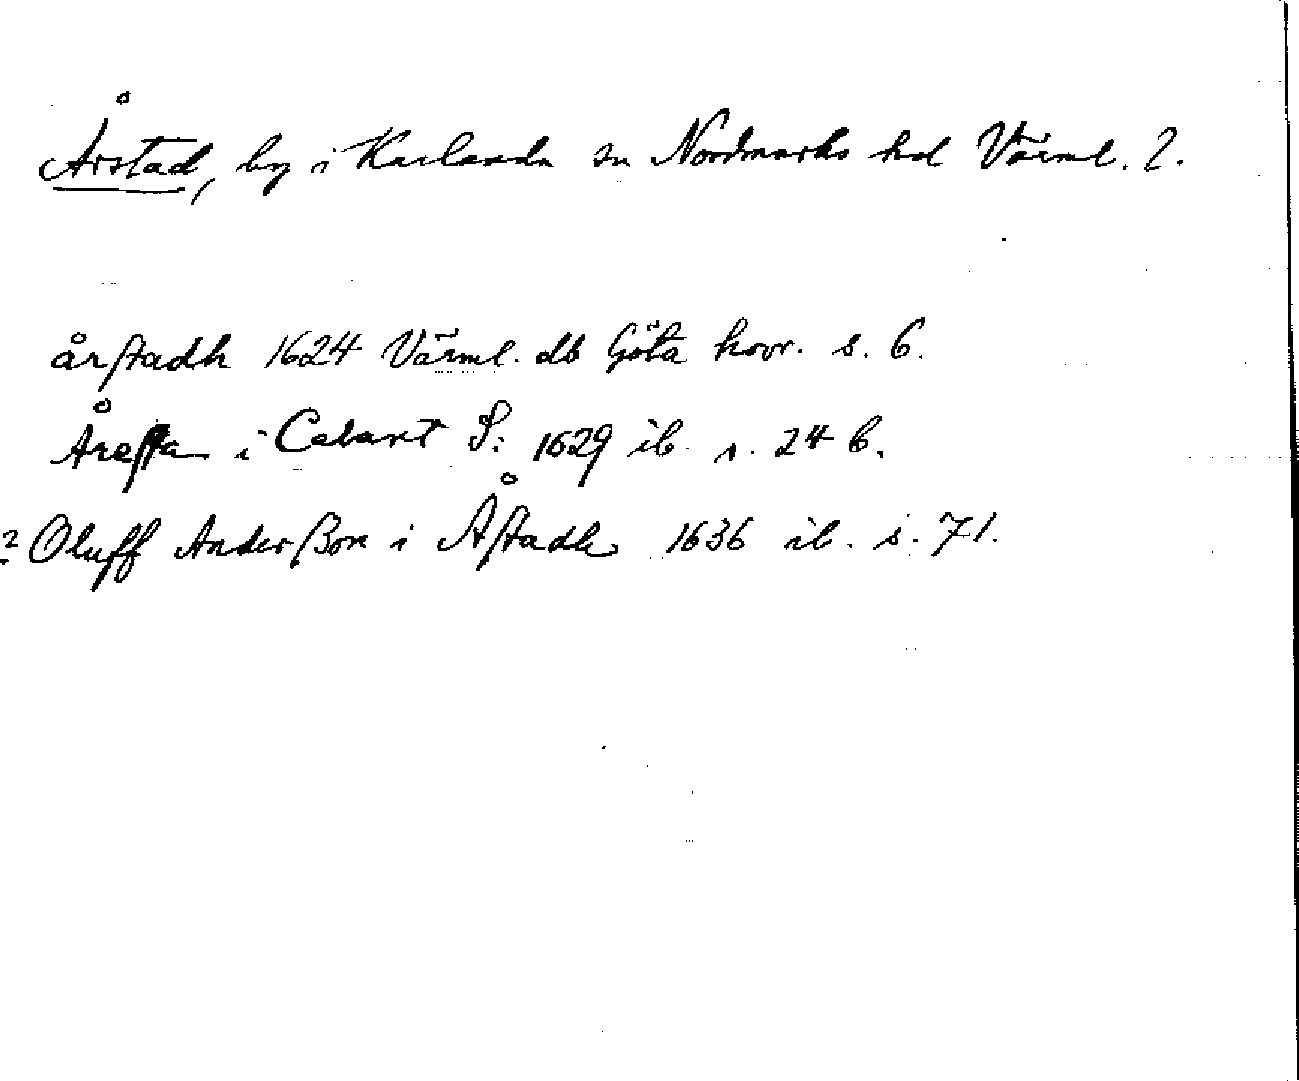 Årstad, by i Karlanda sn Nordmarks hd Värml. l.
årstadh 1624 Värml. db Göta hovr. s. 6.
Åresta i S: 1629 ib. s. 24 b.
? Oluff Anderßon i Åstadh 1636 ib. s. 71.